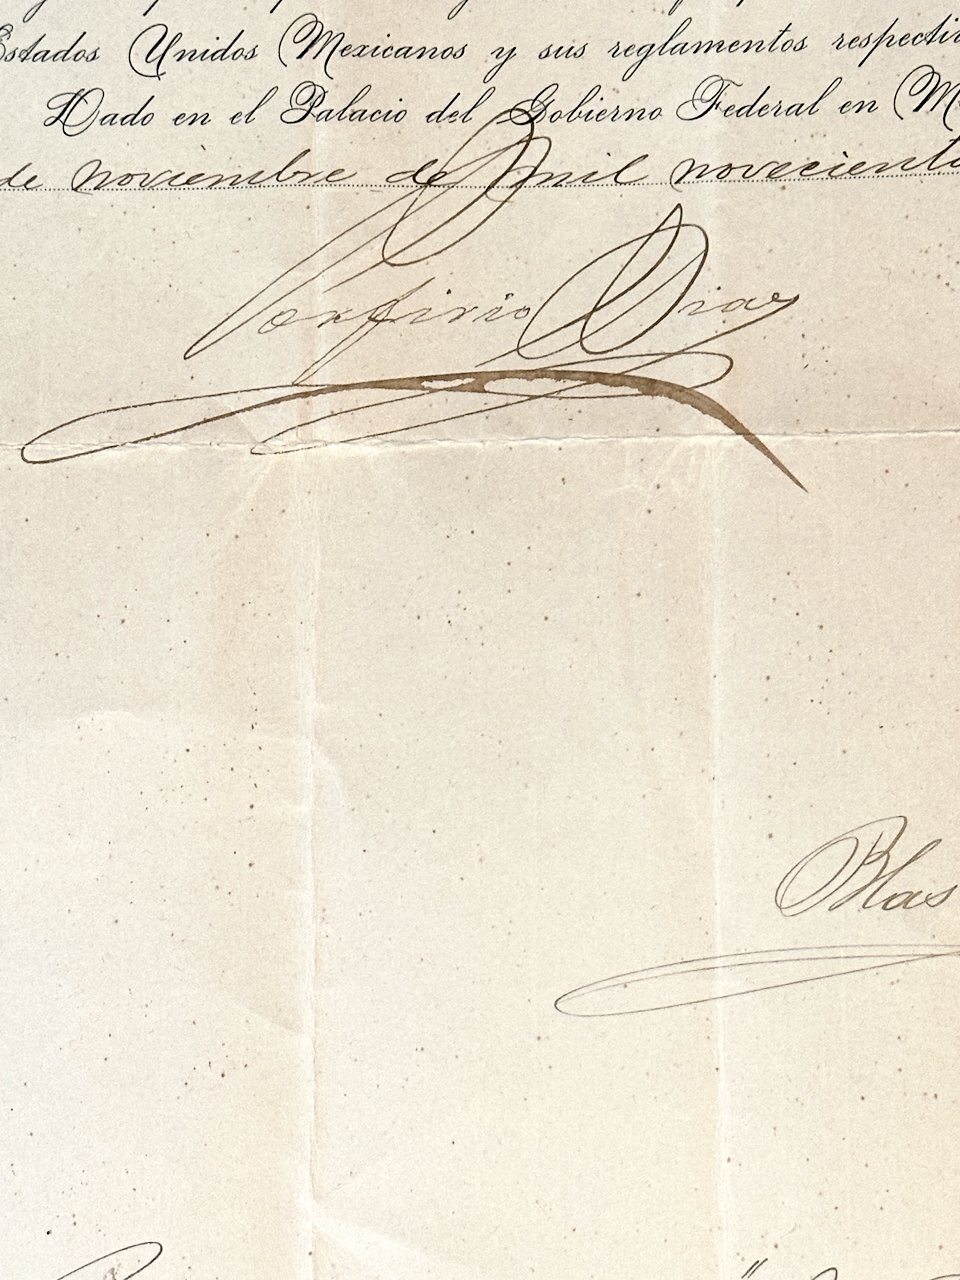 Estados Unidos Mexicanos y sus reglamentos respecti
Dado en el Palacio del Gobierno Federal en M
de noviembre de mil noveciento
Porfirio Diaz
Blas